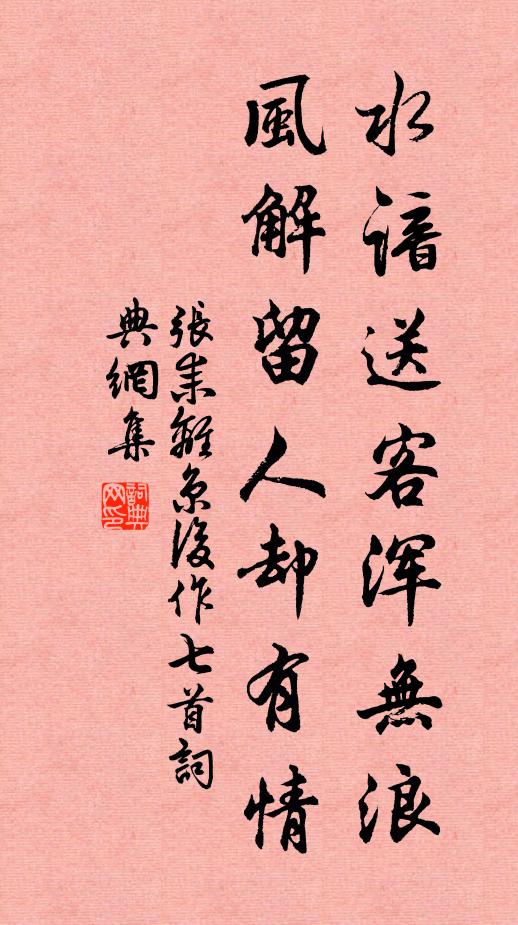 水諳送客渾無浪
風解留人却有情
張耒離京後作七首詞
典網集
詞典網印